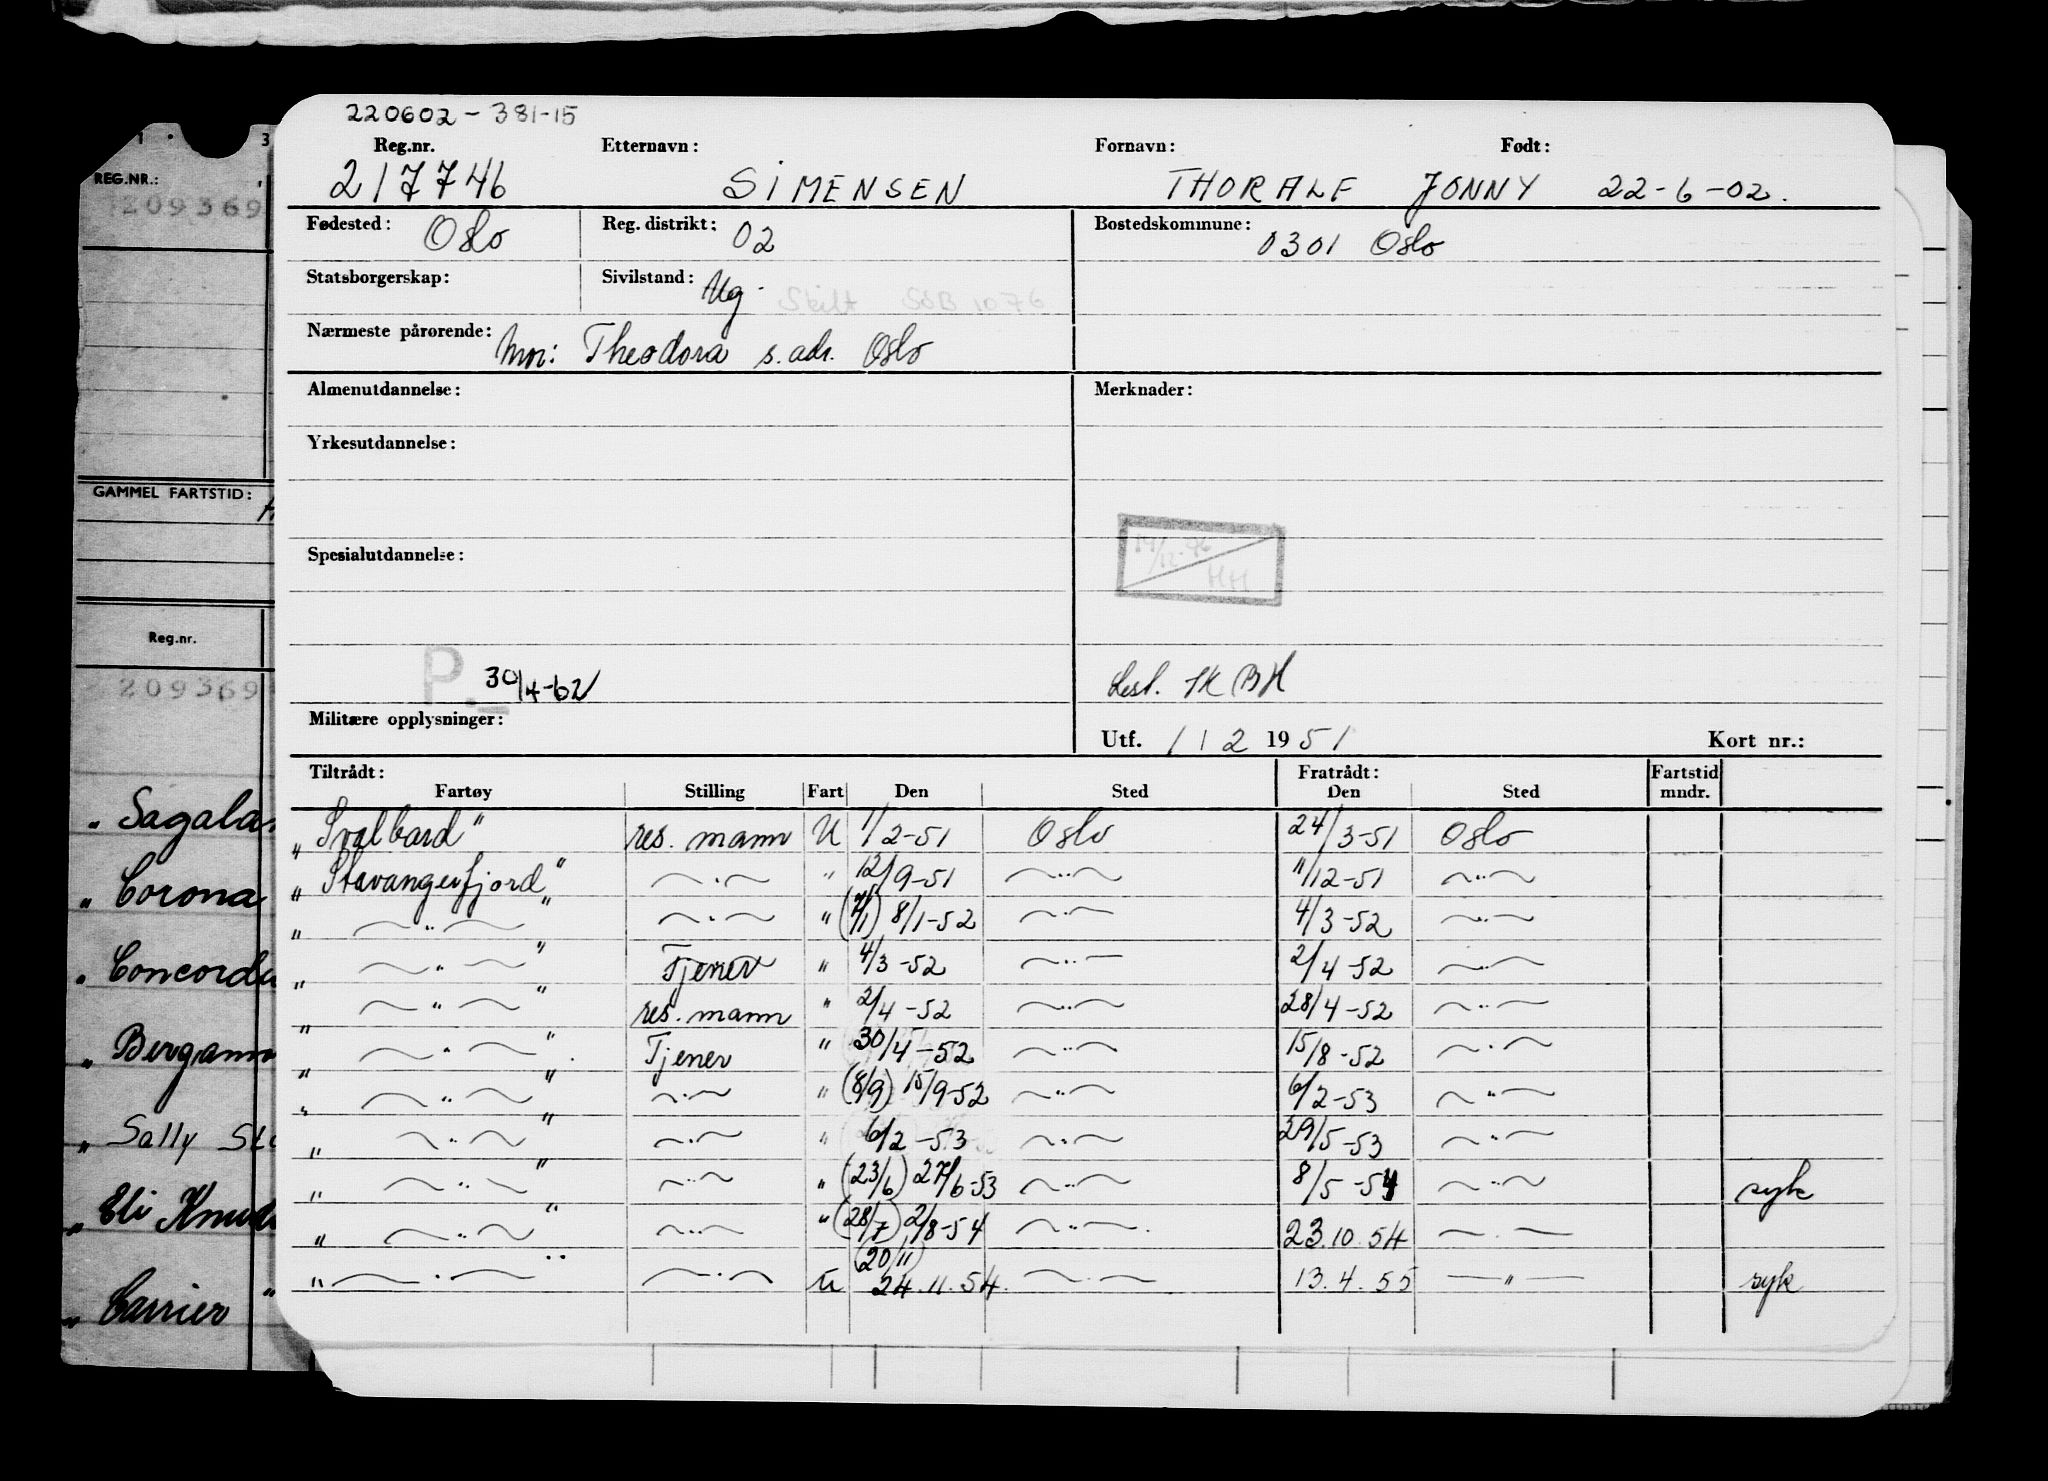 220602-381-15
Reg.nr. Etternavn: Fornavn: Født:
217746 SIMENSEN THORALF JONNY 22-6-02.
Fødested: Oslo Reg. distrikt: 02 Bostedskommune: 0301 Oslo
Statsborgerskap: Sivilstand: Ug. Skilt SØB 1076
Nærmeste pårørende: Mor: Theodora s. adr. Oslo
Almenutdannelse: Merknader:
Yrkesutdannelse:
Spesialutdannelse: 14/12-76 HH
P. 30/4-62 SK BH
Militære opplysninger: Utf. 1 1 2 1951 Kort nr.:
Tiltrådt: Fratrådt: Fartstid
Fartøy Stilling Fart Den Sted Den Sted mndr.
"Svalbard" res. mann U 1/2-51 Oslo 24/3-51 Oslo
"Stavangerfjord" —"— " 12/9-51 —"— 11/12-51 —"—
" —"— " —"— " (7/1) 8/1-52 —"— 4/3-52 —"—
" —"— " Tjener " 4/3-52 —"— 2/4-52 —"—
" —"— " res. mann " 2/4-52 —"— 28/4-52 —"—
" —"— " Tjener " 30/4-52 —"— 15/8-52 —"—
" —"— " —"— " (8/9) 15/9-52 —"— 6/2-53 —"—
" —"— " —"— " 6/2-53 —"— 29/5-53 —"—
" —"— " —"— " (23/6) 27/6-53 —"— 8/5-54 —"— syk
" —"— " —"— " (28/7) 2/8-54 —"— 23.10.54 —"—
" —"— " —"— U (20/11) 24.11.54. —"— 13.4.55 —"— syk
1 3
REG.NR.:
209369
GAMMEL FARTSTID:
Reg.nr.
209369
" Sagala
" Corona
" Concordi
" Bergamo
" Sally St
" Eli Knud
" Carrier "